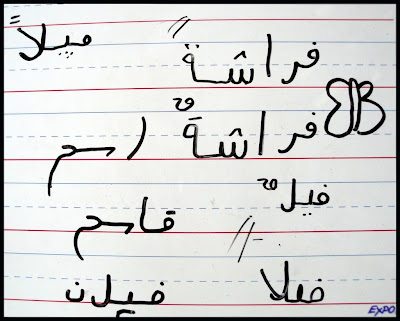 فراشةً فيلاً
فراشةٌ رسم
فيلٌ
قاسم
فيلا فيلن
EXPO